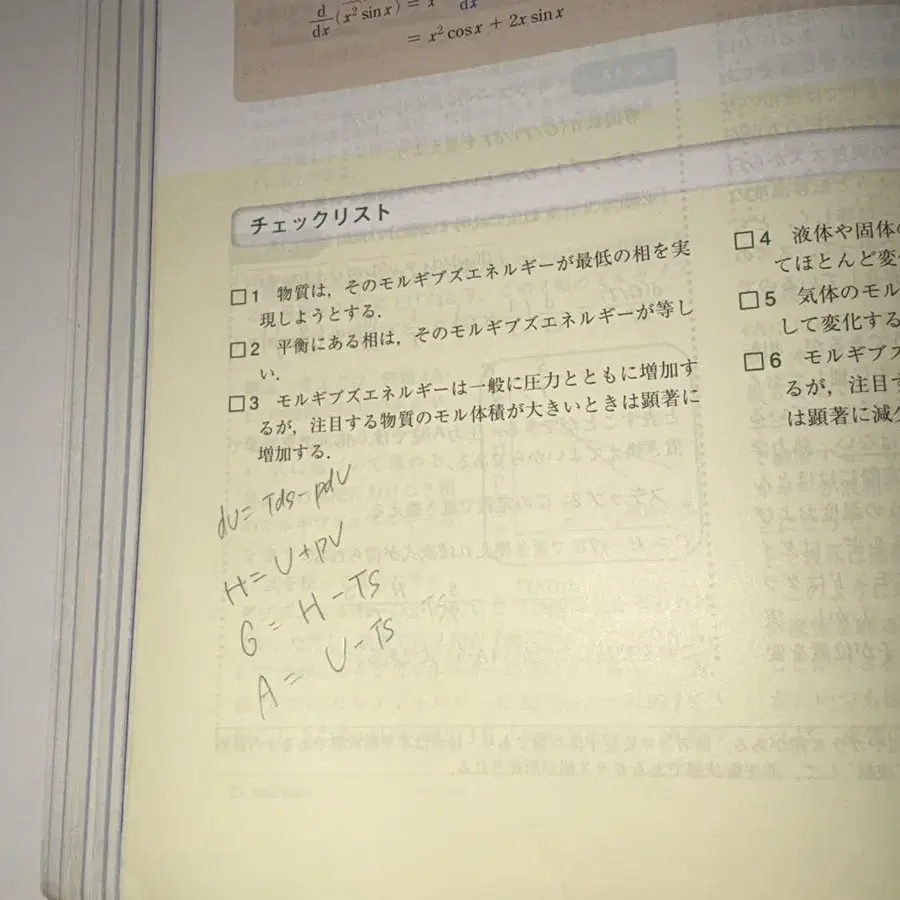 d/dx (x² sin x) = x
dx
= x² cos x + 2x sin x
チェックリスト
□1 物質は,そのモルギブズエネルギーが最低の相を実
現しようとする.
□2 平衡にある相は,そのモルギブズエネルギーが等し
い.
□3 モルギブズエネルギーは一般に圧力とともに増加す
るが,注目する物質のモル体積が大きいときは顕著に
増加する.
dU = TdS - pdV
H = U + pV
G = H - TS
A = U - TS
□4 液体や固体の
てほとんど変
□5 気体のモル
して変化する
□6 モルギブズ
るが,注目す
は顕著に減少